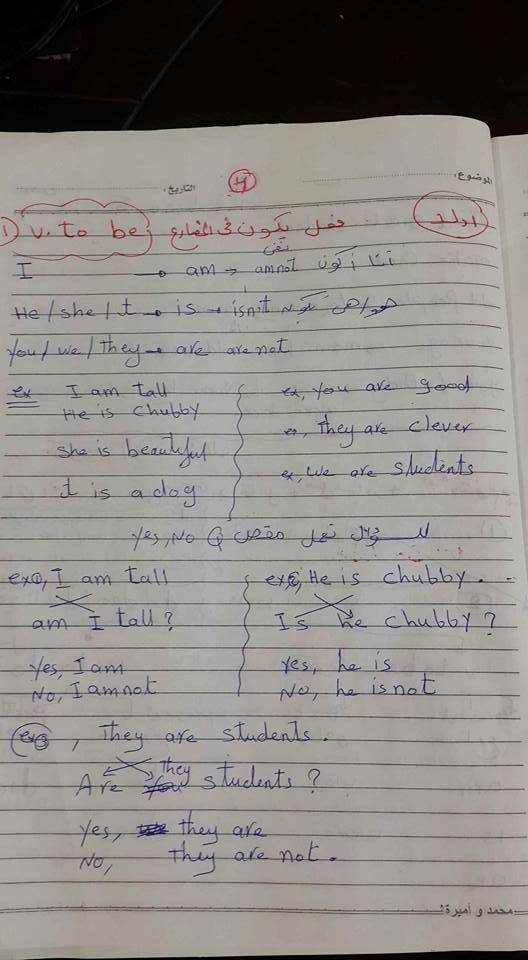 الموضوع: التاريخ:
4
1) V. to be فعل يكون فى المضارع اولا
نفى
I → am → am not أنا أكون
He / she / it → is → isn't
You / we / they → are are not
ex I am tall
He is chubby
she is beautiful
it is a dog
ex, You are good
ex, They are clever
ex, We are students
Yes, No Q
ex①, I am tall
am I tall?
Yes, I am
No, I am not
ex②, He is chubby.
Is he chubby?
Yes, he is
No, he is not
ex③, They are students.
they
Are you students?
Yes, they are
No, they are not.
محمد و أميرة